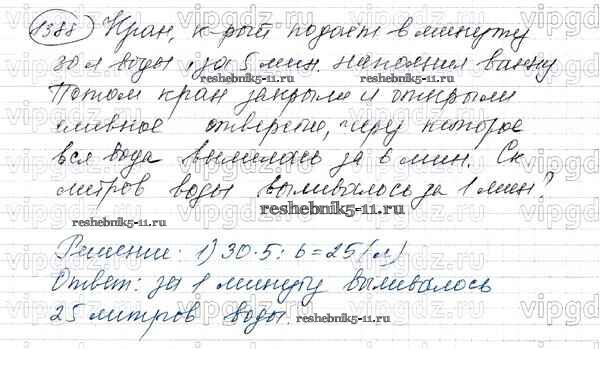 1388 Кран, к-рый подаёт в минуту
30 л воды, за 5 мин. наполнил ванну
Потом кран закрыли и открыли
сливное отверстие, через которое
вся вода вылилась за 6 мин. Ск
литров воды выливалось за 1 мин?
Решение: 1) 30·5:6=25(л)
Ответ: за 1 минуту выливалось
25 литров воды.
reshebnik5-11.ru
reshebnik5-11.ru
reshebnik5-11.ru
reshebnik5-11.ru
reshebnik5-11.ru
vipgdz.ru